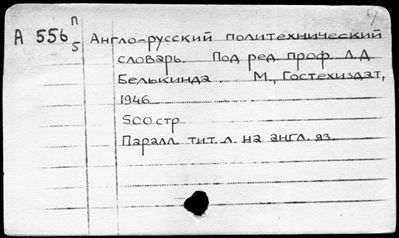 9
А 556 п/5
Англо-русский политехнический
словарь. Под ред. проф. Л.Д.
Белькинда. М., Гостехиздат,
1946
500 стр
Паралл. тит. л. на англ. яз.